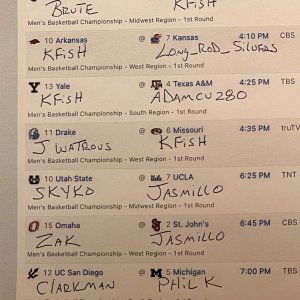 BRUTE KFISH
Men's Basketball Championship - Midwest Region - 1st Round
10 Arkansas @ 7 Kansas 4:10 PM CBS
KFISH LONG_ROD_SILVERS
Men's Basketball Championship - West Region - 1st Round
13 Yale @ 4 Texas A&M 4:25 PM TBS
KFISH ADAMCU280
Men's Basketball Championship - South Region - 1st Round
11 Drake @ 6 Missouri 4:35 PM truTV
J WATROUS KFISH
Men's Basketball Championship - West Region - 1st Round
10 Utah State @ 7 UCLA 6:25 PM TNT
SKYKO JASMILLO
Men's Basketball Championship - Midwest Region - 1st Round
15 Omaha @ 2 St. John's 6:45 PM CBS
ZAK JASMILLO
Men's Basketball Championship - West Region - 1st Round
12 UC San Diego @ 5 Michigan 7:00 PM TBS
CLARKMAN PHIL K
Men's Basketball Championship - South Region - 1st Round